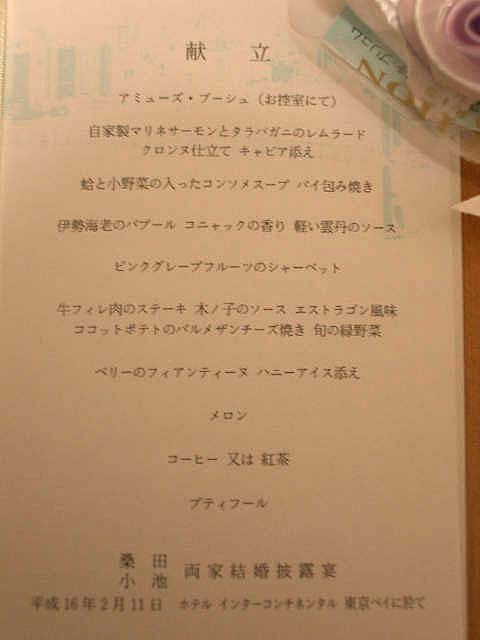 献 立
アミューズ・ブーシュ（お控室にて）
自家製マリネサーモンとタラバガニのレムラード
クロンヌ仕立て キャビア添え
蛤と小野菜の入ったコンソメスープ パイ包み焼き
伊勢海老のバプール コニャックの香り 軽い雲丹のソース
ピンクグレープフルーツのシャーベット
牛フィレ肉のステーキ 木ノ子のソース エストラゴン風味
ココットポテトのパルメザンチーズ焼き 旬の緑野菜
ベリーのフィアンティーヌ ハニーアイス添え
メロン
コーヒー 又は 紅茶
プティフール
桑 田
小 池
両家結婚披露宴
平成16年2月11日 ホテル インターコンチネンタル 東京ベイに於て